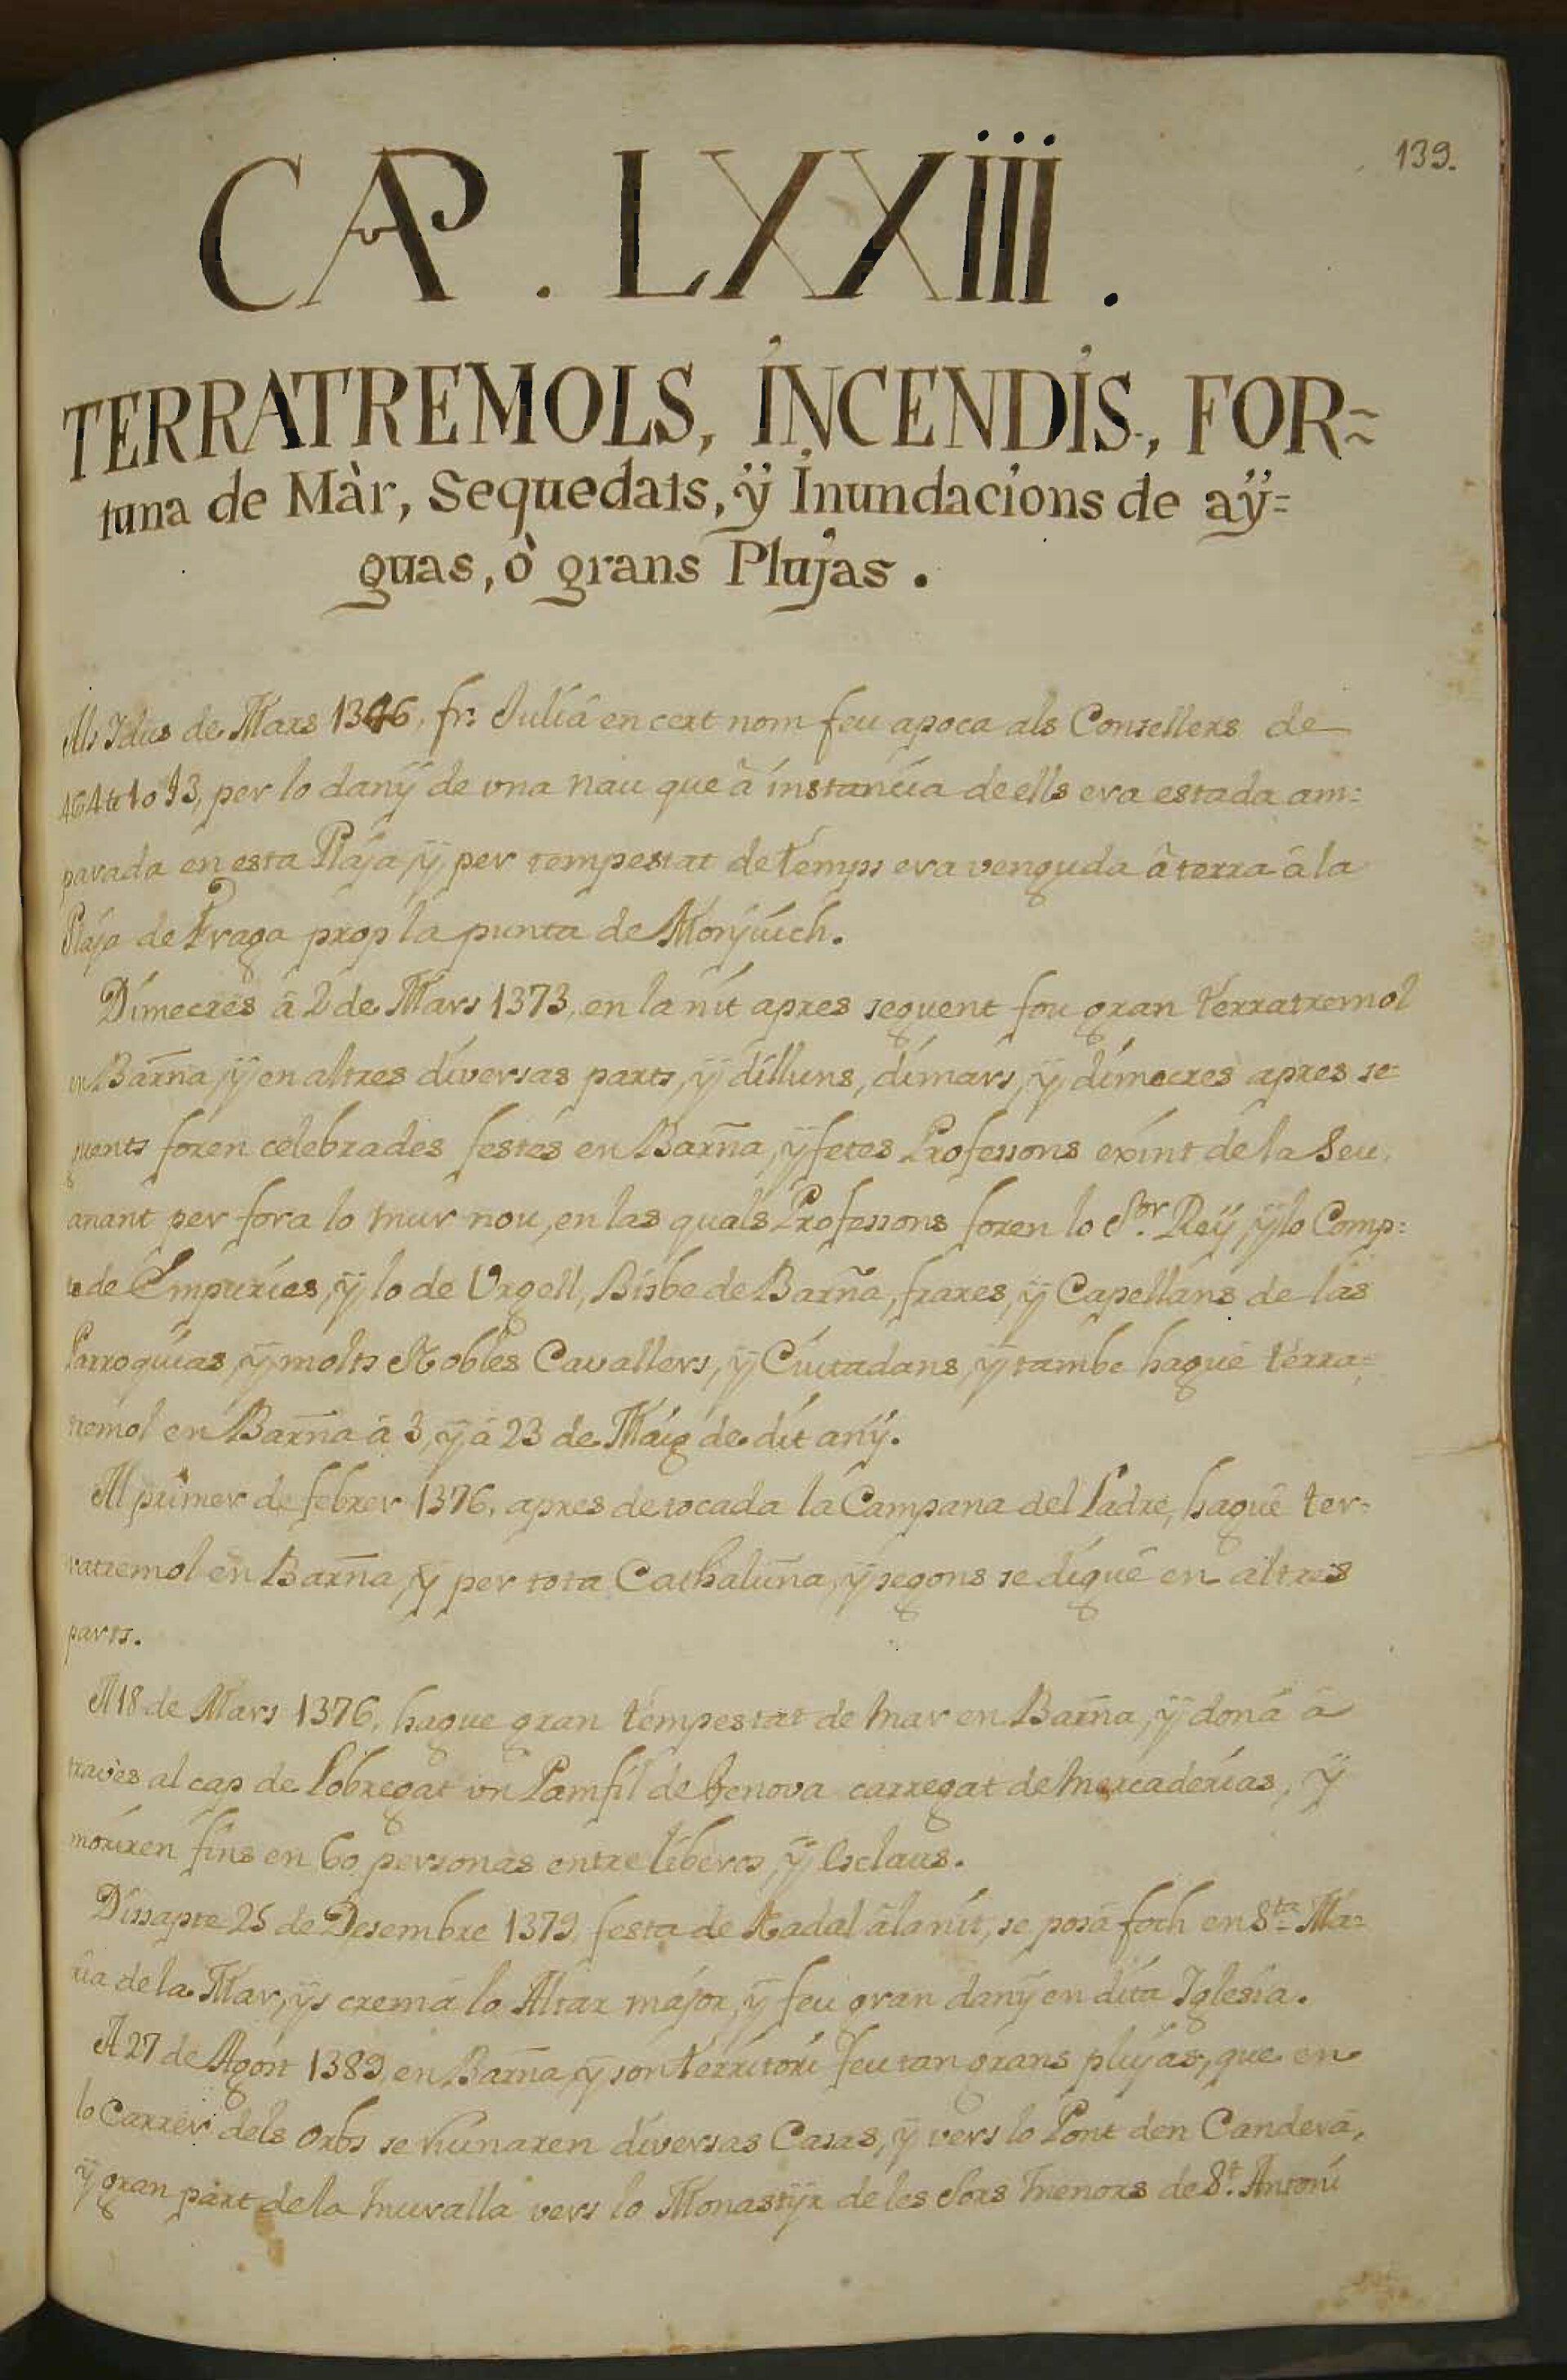 139.
CAP. LXXiii.
TERRATREMOLS, INCENDIS, FOR=
tuna de Màr, Sequedats, ÿ Inundacions de aÿ=
guas, ò grans Plujas.
Als Idus de Mars 1346, fr. Juliâ en cert nom feu apoca als Consellers de
per lo danÿ de una nau que â instancia de ells era estada am=
parada en esta Plája, ÿ per tempestat de temps era venguda â terra â la
Plája de Fraga prop la punta de Monjuich.
Dimecres â 2 de Mars 1373, en la nit apres seguent fou gran terratremol
en Barña, ÿ en altres diversas parts, ÿ dilluns, dimars, ÿ dimecres apres se-
guents foren celebrades festes en Barña, ÿ fetes Professons exint de la Seu,
anant per fora lo mur nou, en las quals Professons foren lo Sor. Reÿ, ÿ lo Comp=
te de Empuries, ÿ lo de Urgell, Bisbe de Barña, frares, ÿ Capellans de las
Parroquias, ÿ molts Nobles Cavallers, ÿ Ciutadans, ÿ tambe hague terra=
tremol en Barña â 3, ÿ â 23 de Maig de dit anÿ.
Al primer de febrer 1376, apres de tocada la Campana del Ladre, haguê ter-
ratremol en Barña, ÿ per tota Cathaluña, ÿ segons se diguê en altres
parts.
A 18 de Mars 1376, hague gran tempestat de mar en Barña, ÿ donâ â
travès al cap de Lobregat un Pamfil de Genova carregat de mercaderias, ÿ
moriren fins en 60 personas entre liberos, ÿ Esclaus.
Dissapte 25 de Desembre 1379, festa de Nadal â la nit, se posâ foch en Sta. Ma=
ria de la Mar, ÿs cremâ lo Altar major, ÿ feu gran danÿ en dita Iglesia.
A 27 de Agost 1389, en Barña, ÿ son territori feu tan grans plujas, que en
lo Carrer dels Orbs se ruinaren diversas Casas, ÿ vers lo Pont den Canderâ,
ÿ gran part de la muralla vers lo Monastÿr de les Sors menors de St. Antoni